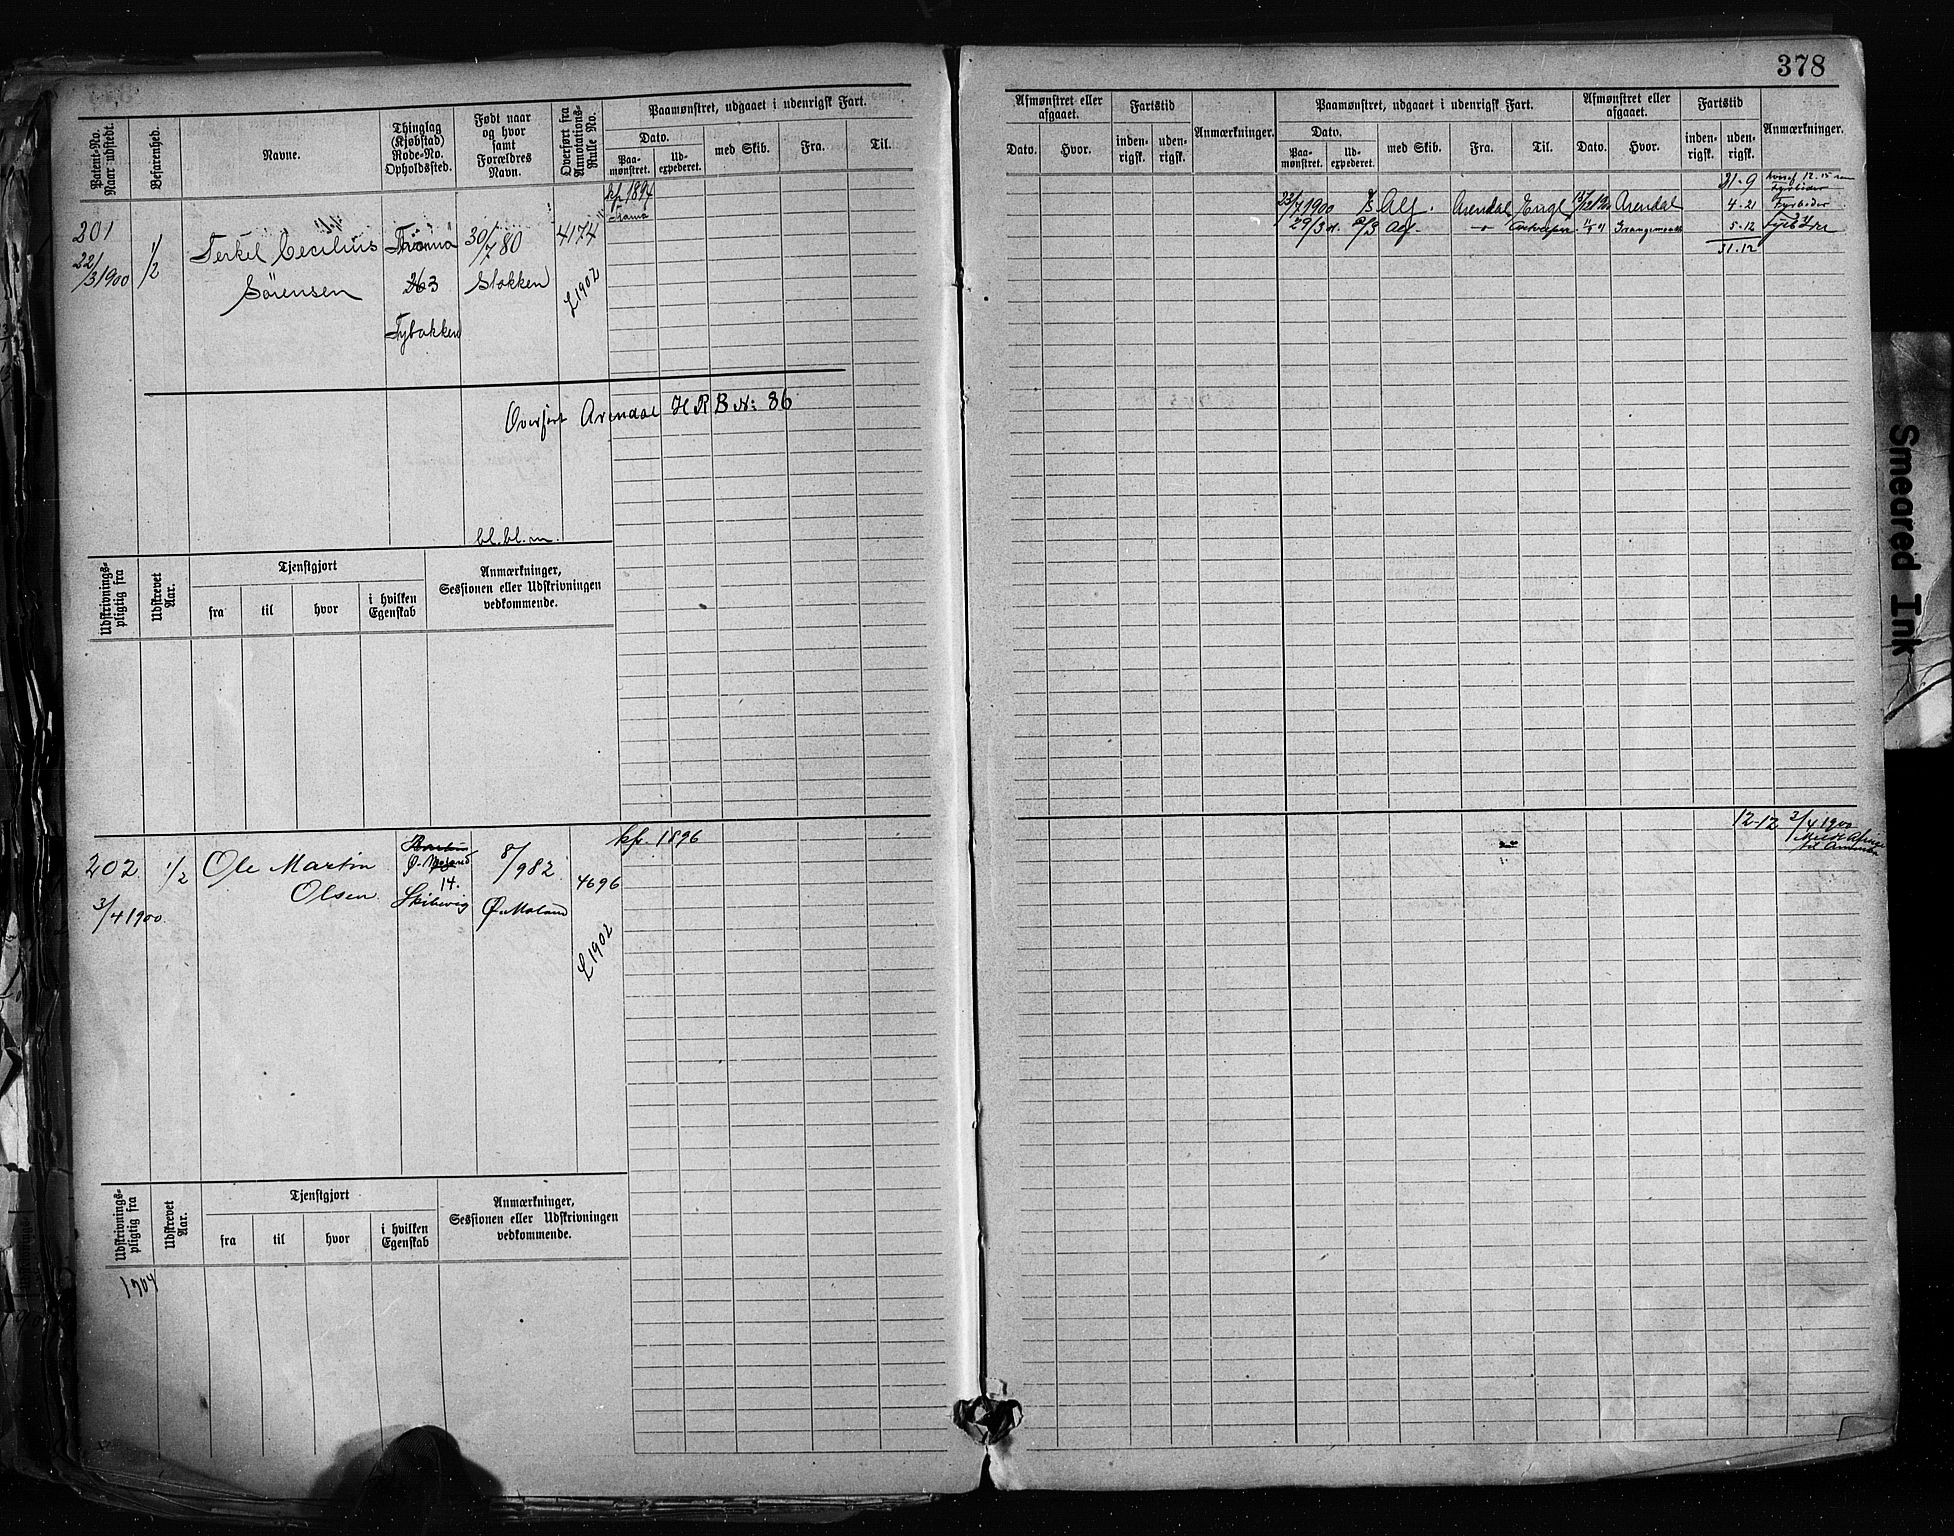 378
Patent-No. Naar udstedt.
Befarenhed.
Navne.
Thinglag (Kjøbstad) Rode-No. Opholdssted.
Født naar og hvor samt Forældres Navn.
Overført fra Annotations-Rulle No.
Paamønstret, udgaaet i udenrigsk Fart.
Dato.
Paa-mønstret.
Ud-expederet.
med Skib.
Fra.
Til.
Afmønstret eller afgaaet.
Dato.
Hvor.
Fartstid
inden-rigsk.
uden-rigsk.
Anmærkninger.
Paamønstret, udgaaet i udenrigsk Fart.
Dato.
Paa-mønstret.
Ud-expederet.
med Skib.
Fra.
Til.
Afmønstret eller afgaaet.
Dato.
Hvor.
Fartstid
inden-rigsk.
uden-rigsk.
Anmærkninger.
201
22/3 1900
1/2
Terkel Cecilius
Sørensen
Tromø
263
Tybakken
30/7 80
Stokken
4174
L 1902
kf. 1894
Tromø
21-9
1900 Alf. Arendal Engl Arendal 4-21 Fyrbøder
29/3 Alf Grangemouth 5-12
31-12
Overført Arendal H R B N: 86
bl. bl. m.
Udskrivnings-pligtig fra
Udskrevet Aar.
Tjenstgjort
fra
til
hvor
i hvilken Egenskab
Anmærkninger, Sessionen eller Udskrivningen vedkommende.
202
3/4 1900
1/2
Ole Martin
Olsen
14.
8/9 82
Ø. Moland
4696
L 1902
kf. 1896
12-12 3/4 1900
Udskrivnings-pligtig fra
Udskrevet Aar.
Tjenstgjort
fra
til
hvor
i hvilken Egenskab
Anmærkninger, Sessionen eller Udskrivningen vedkommende.
1904
Smeared Ink